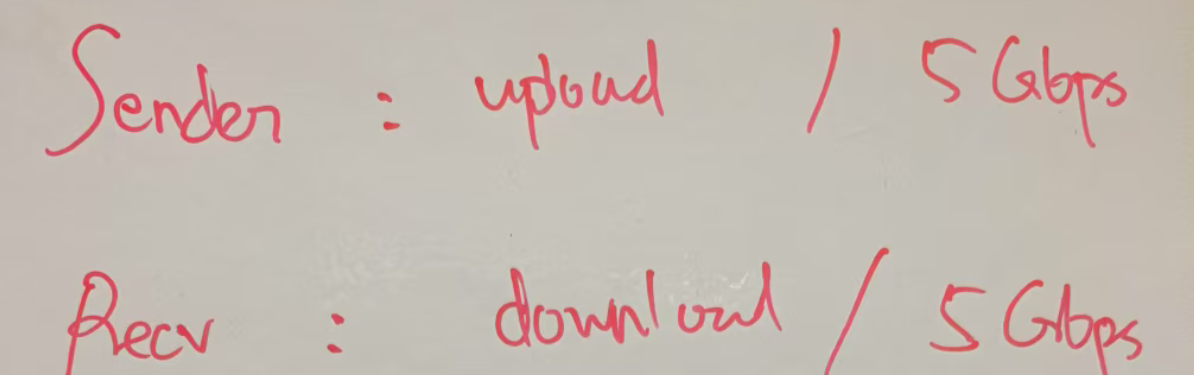 Sender : upload / 5 Gbps
Recv : download / 5 Gbps